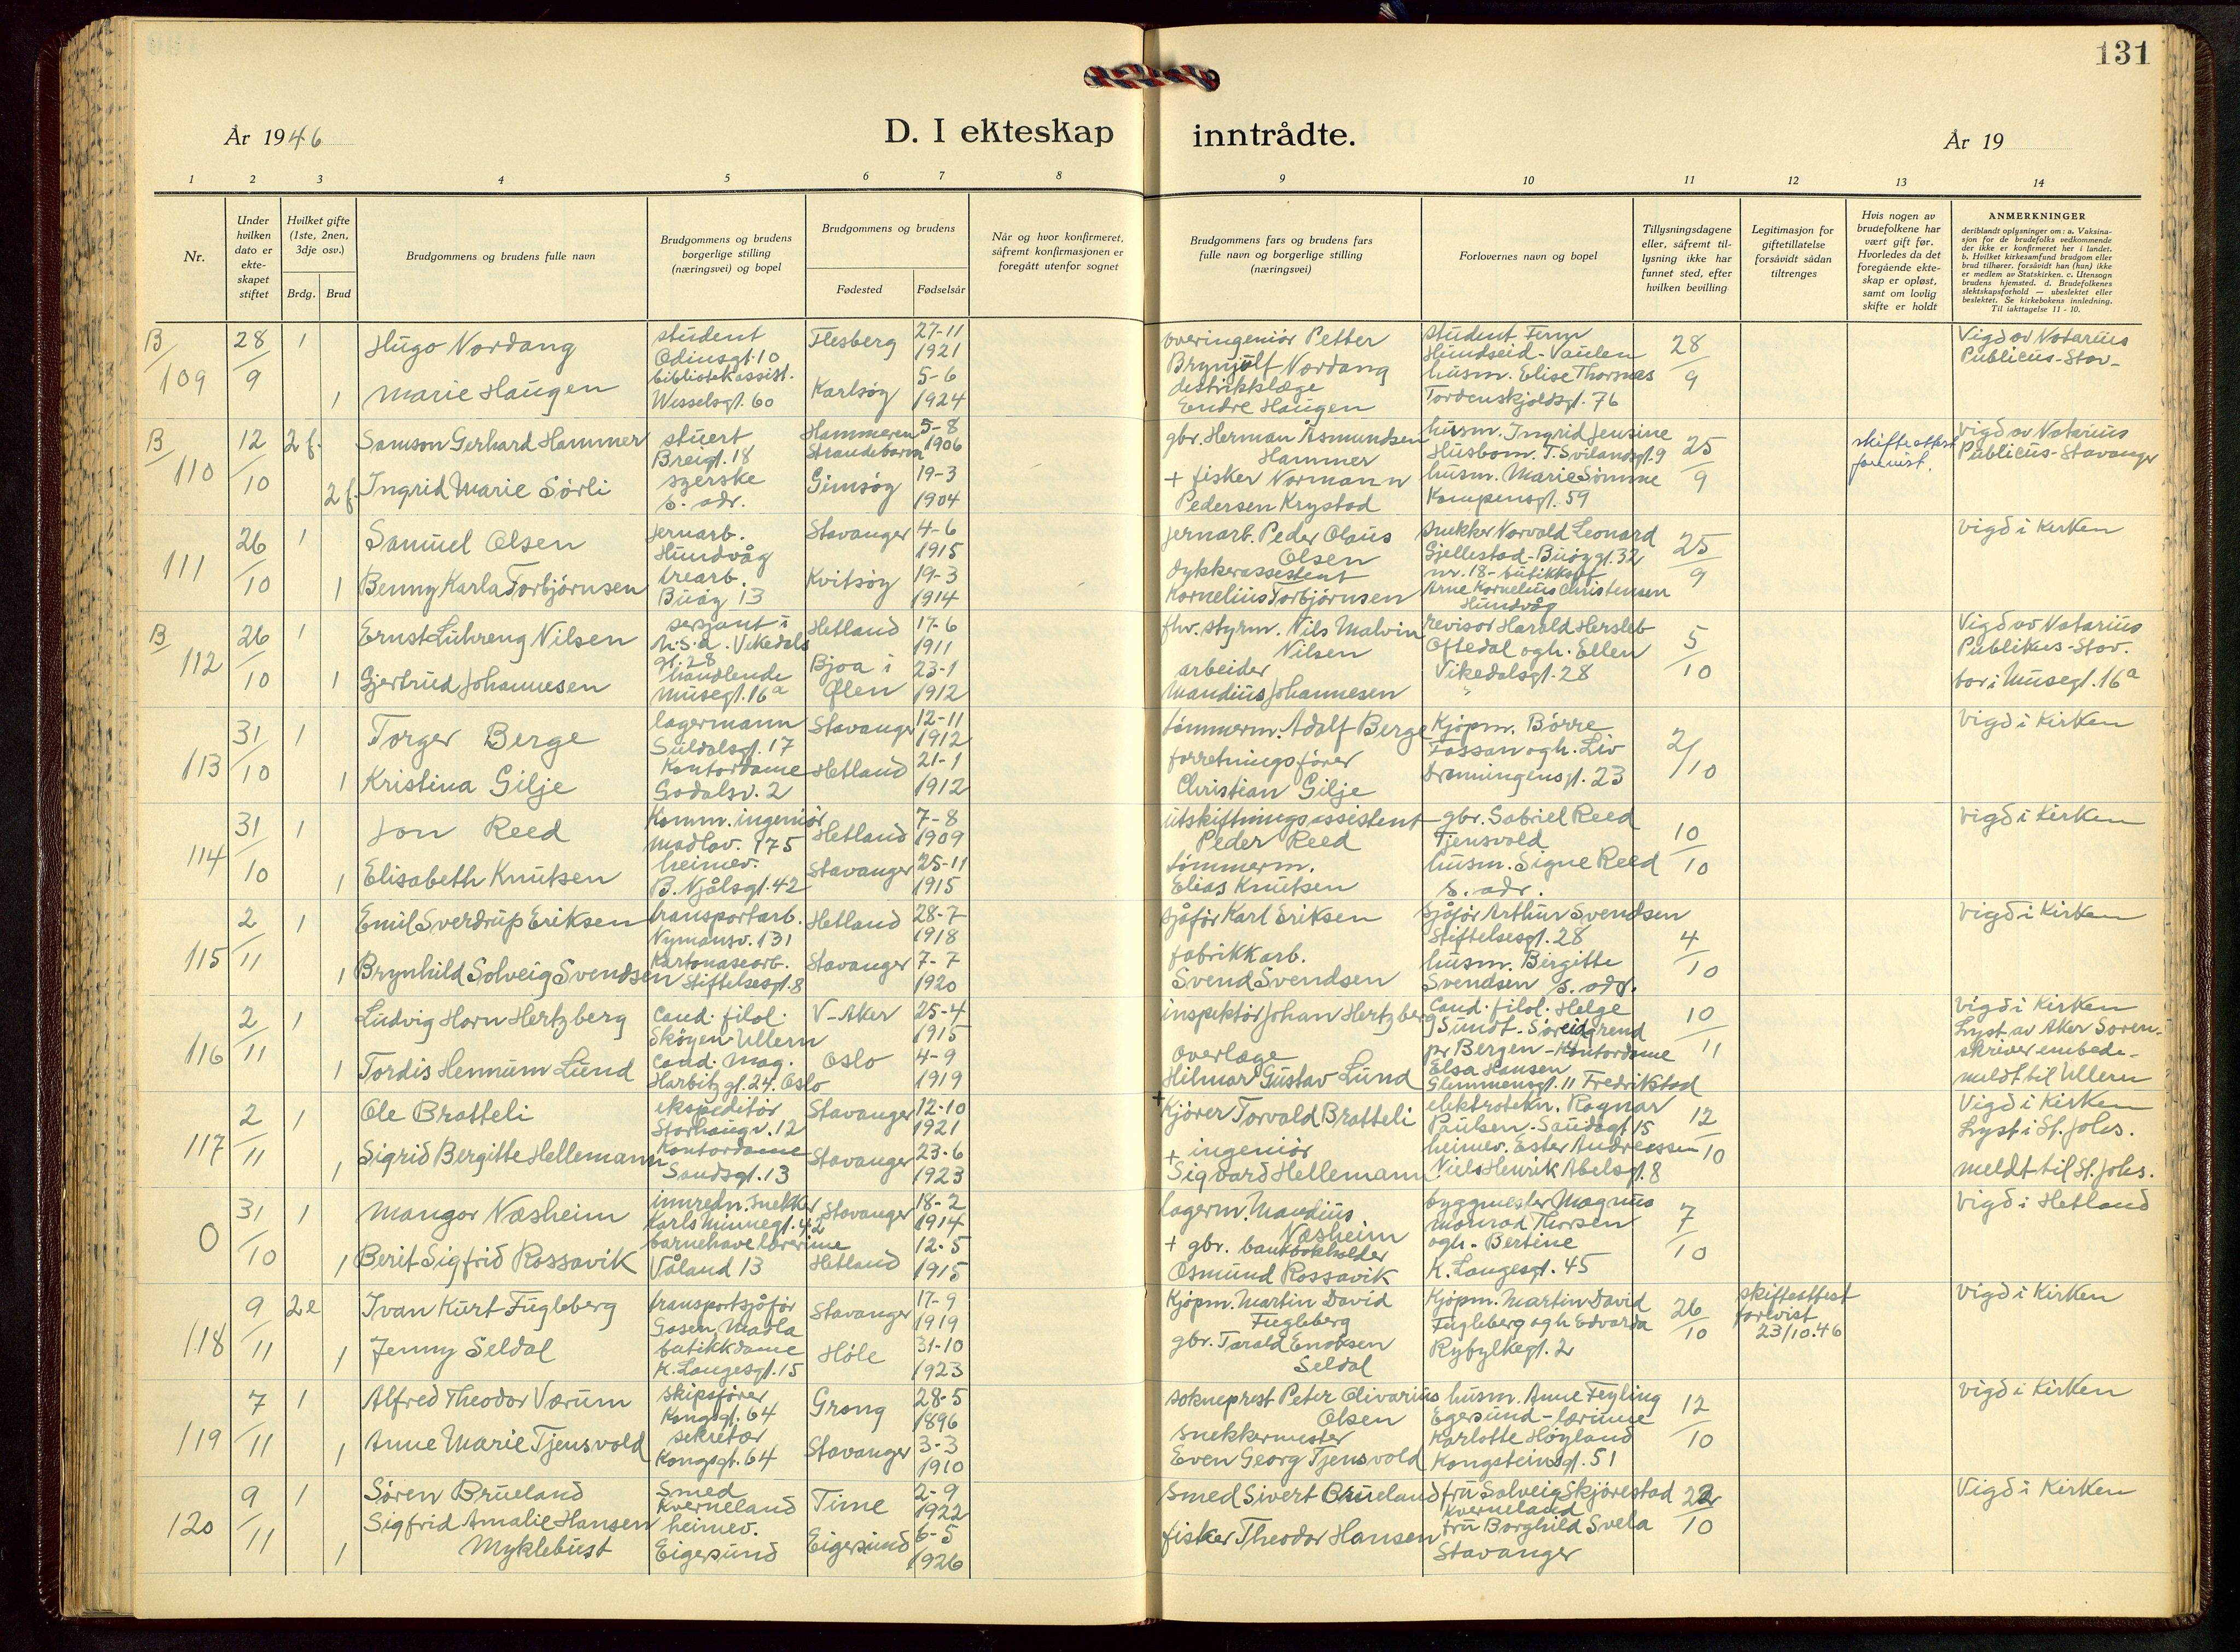 131
År 1946
D. I ekteskap inntrådte.
År 19
1 2 3 4 5 6 7 8 9 10 11 12 13 14
Nr.
Under hvilken dato er ekte-skapet stiftet
Hvilket gifte (1ste, 2nen, 3dje osv.)
Brdg. Brud
Brudgommens og brudens fulle navn
Brudgommens og brudens borgerlige stilling (næringsvei) og bopel
Brudgommens og brudens
Fødested Fødselsår
Når og hvor konfirmeret, såfremt konfirmasjonen er foregått utenfor sognet
Brudgommens fars og brudens fars fulle navn og borgerlige stilling (næringsvei)
Forlovernes navn og bopel
Tillysningsdagene eller, såfremt til-lysning ikke har funnet sted, efter hvilken bevilling
Legitimasjon for giftetillatelse forsåvidt sådan tiltrenges
Hvis nogen av brudefolkene har vært gift før. Hvorledes da det foregående ekte-skap er opløst, samt om lovlig skifte er holdt
ANMERKNINGER
deriblandt oplysninger om: a. Vaksina-sjon for de brudefolks vedkommende der ikke er konfirmeret her i landet. b. Hvilket kirkesamfund brudgom eller brud tilhører, forsåvidt han (hun) ikke er medlem av Statskirken. c. Utensogn brudens hjemsted. d. Brudefolkenes slektskapsforhold — ubeslektet eller beslektet. Se kirkebokens innledning. Til iakttagelse 11 - 10.
B 109 28/9 1 Hugo Nordang student Odinsgt. 10 Flesberg 27-11 1921 overingeniør Petter Brynjulf Nordang student Finn Hundseid - Vaulen 28/9 Vigd av Notarius Publicus - Stav-
1 Marie Haugen bibliotekassist. Wesselsgt. 60 Karlsøy 5-6 1924 destriktslæge Endre Haugen husm. Elise Thorsnæs Tordenskjoldsgt. 76
B 110 12/10 2 f. Samson Gerhard Hammer stuert Breigt. 18 Hammeren Strandebarm 5-8 1906 gbr. Herman Åsmundsen Hammer husm. Ingrid Jensine Husbom. T. Svilandsgt. 9 25/9 skifteattest forevist. Vigd av Notarius Publicus - Stavanger
2 f. Ingrid Marie Sörli syerske s. adr. Gimsøy 19-3 1904 + fisker Normann Pedersen Krystad husm. Marie Sömme Kampensgt. 59
111 26/10 1 Samuel Olsen jernarb. Hundvåg Stavanger 4-6 1915 jernarb. Peder Olaus Olsen snekker Norvald Leonard Gjellestad - Buøygt. 32 25/9 vigd i kirken
1 Benny Karla Torbjörnsen trearb. Buøy 13 Kvitsöy 19-3 1914 dykkerassistent Kornelius Torbjörnsen nr. 18 - butikksjef Arne Kornelius Christensen Hundvåg
B 112 26/10 1 Ernst Lühreng Nilsen sersjant i Vikedalsgt. 28 Hetland 17-6 1911 fhv. styrm. Nils Malvin Nilsen revisor Harald Hersleb Oftedal og h. Ellen Vikedalsgt. 28 5/10 Vigd av Notarius Publikus - Stav.
1 Gjertrud Johannesen handlende Musegt. 16a Bjoa i Ølen 23-1 1912 arbeider Mandius Johannesen bor i Musegt. 16a
113 31/10 1 Torger Berge lagermann Suldalsgt. 17 Stavanger 12-11 1912 tømmerm. Adolf Berge Kjøpm. Börre Fossan og h. Liv Dronningensgt. 23 2/10 Vigd i Kirken
1 Kristina Gilje Kontordame Godalsv. 2 Hetland 21-1 1912 forretningsfører Christian Gilje
114 31/10 1 Jon Reed Komm. ingeniør Madlav. 175 Hetland 7-8 1909 utskiftningsassistent Peder Reed gbr. Gabriel Reed Tjensvold 10/10 vigd i Kirken
1 Elisabeth Knutsen heimev. B. Njålsgt. 42 Stavanger 25-11 1915 tømmerm. Elias Knutsen husm. Signe Reed s. adr.
115 2/11 1 Emil Sverdrup Eriksen transportarb. Nymansv. 131 Hetland 28-7 1918 sjåför Karl Eriksen sjåför Arthur Svendsen Stiftelsesgt. 28 4/10 vigd i kirken
1 Brynhild Solveig Svendsen Kartonasearb. Stiftelsesgt. 8 Stavanger 7-7 1920 fabrikkarb. Svend Svendsen husm. Birgitte Svendsen s. adr.
116 2/11 1 Ludvig Horn Hertzberg Cand. filol. Skøyen Ullern V-Aker 25-4 1915 inspektør Johan Hertzberg Cand. filol. Helge Sundt - Søreidgrend pr Bergen - Kontordame 10/11 vigd i Kirken Lyst av Aker Soren-skriverembede -
1 Tordis Hennum Lund cand. mag. Harbitzgt. 24. Oslo Oslo 4-9 1919 Overlæge Hilmar Gustav Lund Elsa Hansen Glemmensgt. 11 Fredrikstad meldt til Ullern
117 2/11 1 Ole Bratteli ekspeditör Storhaugv. 12 Stavanger 12-10 1921 + Kjörer Torvald Bratteli elektrotekn. Ragnar Paulsen - Saudagt 15 12/10 Vigd i Kirken Lyst i St. Johs.
1 Sigrid Bergitte Hellemann Kontordame Sandsgt. 13 Stavanger 23-6 1923 + ingeniör Sigvard Hellemann heimev. Ester Andreassen Niels Henrik Abelsgt. 8 meldt til St. Johs.
0 31/10 1 Mangor Næsheim innredn. snekker Karls Minnegt. 42 Stavanger 18-2 1914 lagerm. Mandius Næsheim byggmester Magnus Monrad Thorsen og h. Bertine K. Langesgt. 45 7/10 Vigd i Hetland
1 Berit Sigfrid Rossavik barnehavelærerinne Våland 13 Hetland 12-5 1915 + gbr. bankbokholder Osmund Rossavik
118 9/11 2 e Ivan Kurt Fugleberg transportsjåför Gosen, Madla Stavanger 17-9 1919 Kjöpm. Martin David Fugleberg Kjöpm. Martin David Fugleberg og h. Edvarda Ryfylkegt. 2 26/10 skifteattest forevist 23/10.46 vigd i Kirken
1 Jenny Seldal butikkdame K. Langesgt. 15 Høle 31-10 1923 gbr. Tarald Enoksen Seldal
119 7/11 1 Alfred Theodor Værum skipsfører Kongsgt. 64 Grong 28-5 1896 sokneprest Peter Olivarius Olsen husm. Anne Feyling Egersund - lærinne 12/10 vigd i Kirken
1 Anne Marie Tjensvold sekretær Kongsgt. 64 Stavanger 3-3 1910 Snekkermester Even Georg Tjensvold Karlotte Høyland Kongsteinsgt. 51
120 9/11 1 Sören Brueland Smed Kverneland Time 2-9 1922 Smed Sivert Brueland fru Solveig Skjörestad Kverneland 22/10 Vigd i Kirken
1 Sigfrid Amalie Hansen Myklebust heimev. Eigersund Eigersund 6-5 1926 fisker Theodor Hansen fru Borghild Svela Stavanger